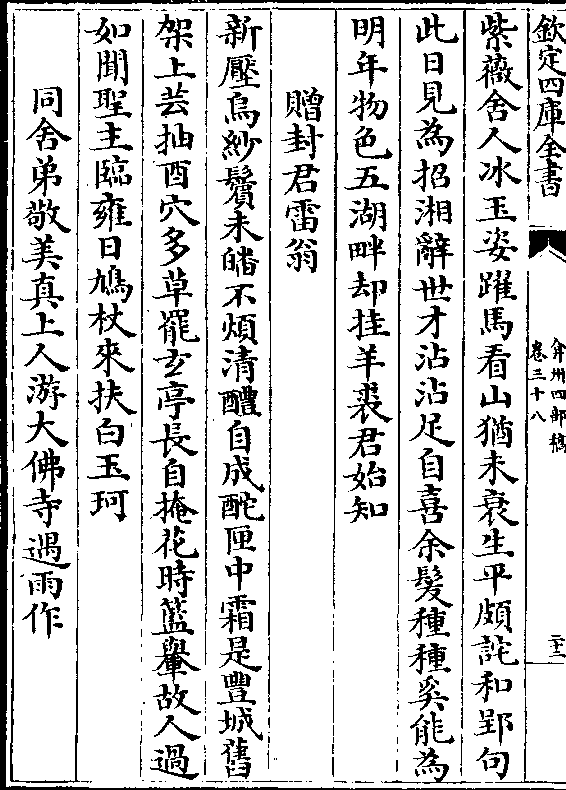 欽定四庫全書
弇州四部稿
卷三十八
二十二
紫薇舍人冰玉姿躍馬看山猶未衰生平頗詫和郢句
此日見為招湘辭世才沾沾足自喜余髮種種奚能為
明年物色五湖畔却挂羊裘君始知
贈封君雷翁
新壓烏紗鬢未皤不煩清醴自成酡匣中霜是豐城舊
架上芸抽酉穴多草罷玄亭長自掩花時藍轝故人過
如聞聖主臨雍日鳩杖來扶白玉珂
同舍弟敬美真上人游大佛寺遇雨作